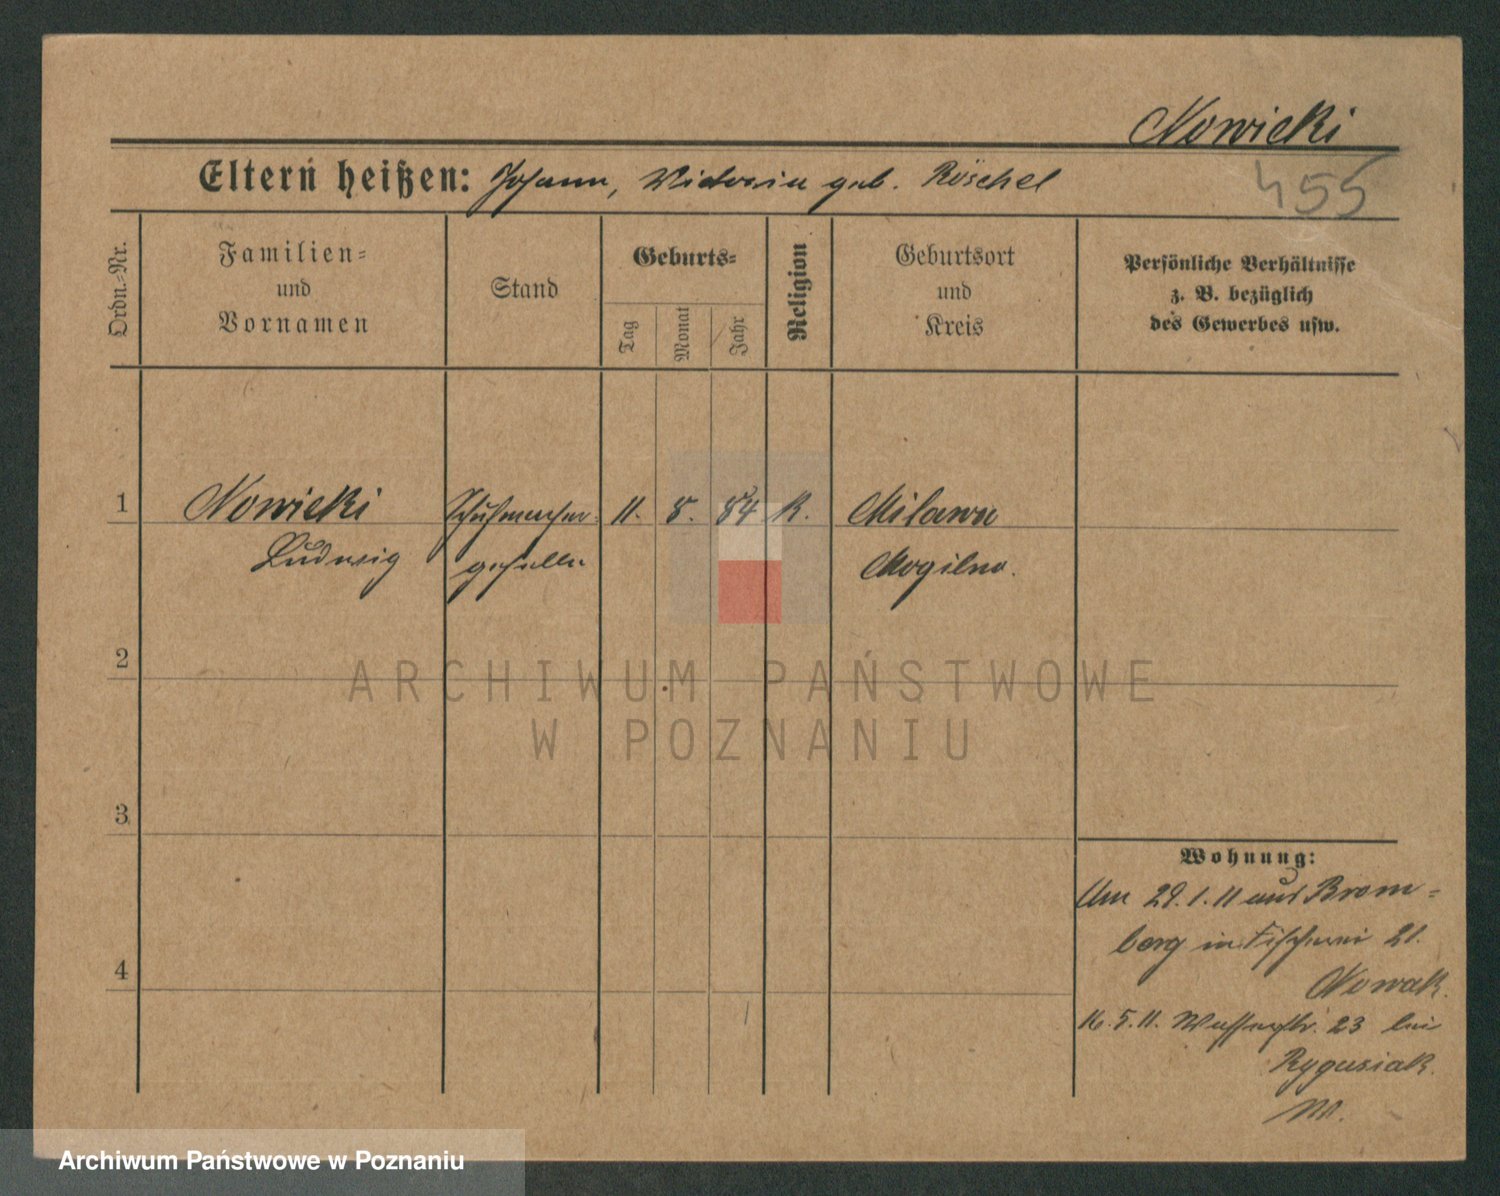 Nowicki
455
Eltern heißen: Johann, Victoria geb. Röschel
Ordn.=Nr.
Familien=
und
Vornamen
Stand
Geburts=
Tag
Monat
Jahr
Religion
Geburtsort
und
Kreis
Persönliche Verhältnisse
z. B. bezüglich
des Gewerbes usw.
1 Nowicki Schuhmacher= 11. 8. 84 K. Milawa
Ludwig geselle Mogilno.
2
ARCHIWUM PAŃSTWOWE
W POZNANIU
3
Wohnung:
Am 29.1.11 aus Brom=
berg in Fischerei 21.
4
Nowak.
16.5.11. Wasserstr. 23 bei
Rygusiak.
Archiwum Państwowe w Poznaniu